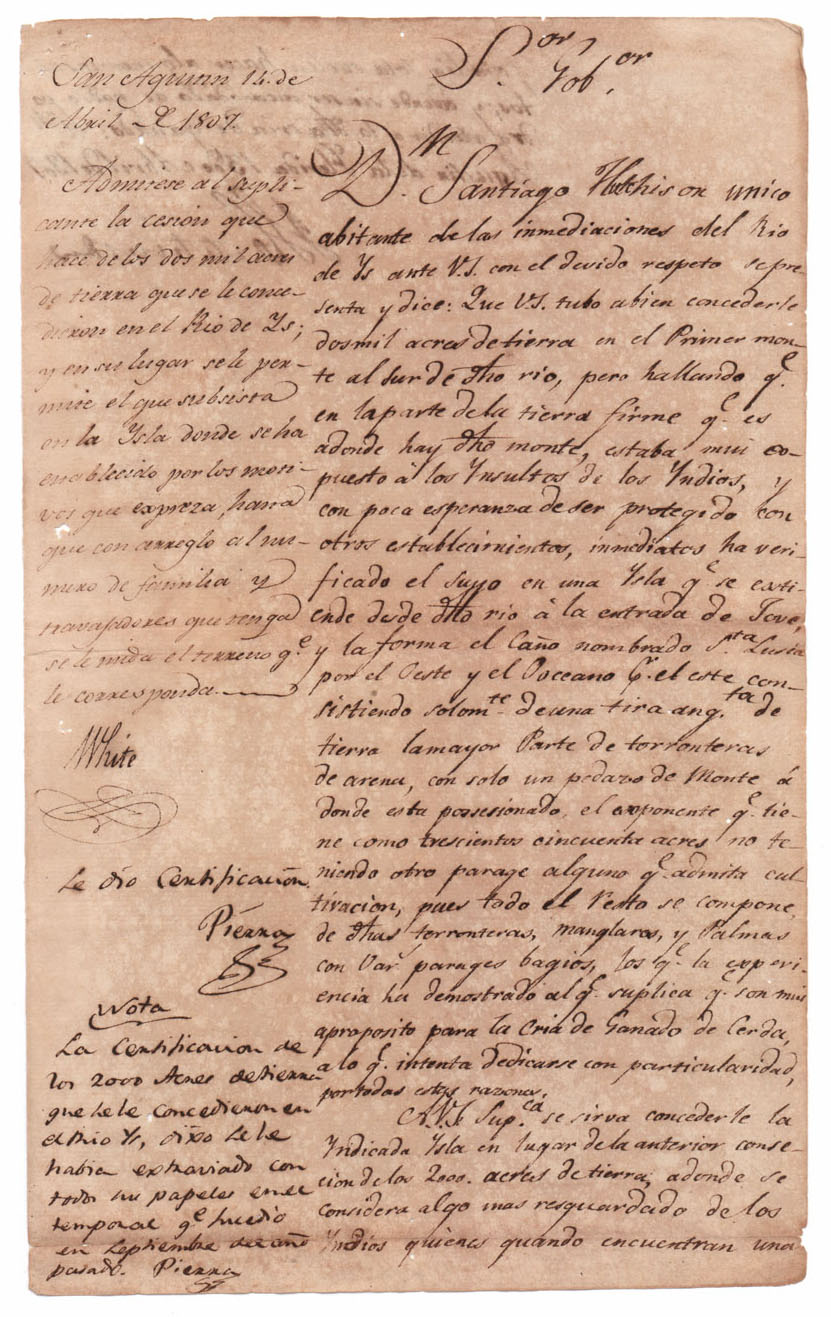 San Agustin 14. de
Abril de 1807.
Admitese al supli-
cante la cesion que
hace de los dos mil acres
de tierra que se le conce-
dieron en el Rio de Ys;
y en su lugar se le per-
mite el que subsista
en la Ysla donde se ha
establecido por los moti-
vos que expreza, hasta
que con arreglo al nu-
mero de familia y
travajadores que tenga
se le mida el terreno q.e
le corresponda.
White
Se dio Certificacion.
Pierra
Nota
La Certificacion de
los 2000 Acres de tierra
que se le concedieron en
el Rio Ys, dixo se le
habia extraviado con
todos sus papeles en el
temporal q.e huvo
en Septiembre del año
pasado. Pierra
S.or Gob.or
D.n Santiago Hutchison unico
abitante de las inmediaciones del Rio
de Ys ante V.S. con el devido respeto se pre
senta y dice: Que V.S. tubo abien concederle
dos mil acres de tierra en el Primer mon-
te al Sur de dho rio, pero hallando q.e
en la parte de la tierra firme q.e es
adonde hay dho monte, estaba mui ex-
puesto à los Ynsultos de los Yndios, y
con poca esperanza de ser protegido con
otros establecimientos, inmediatos ha veri-
ficado el suyo en una Ysla q.e se exti-
ende desde dho rio à la entrada de
y la forma el Caño nombrado S.ta Lusia
por el Oeste y el Occeano p.r el este con-
sistiendo solom.te de una tira ang.ta de
tierra la mayor Parte de torronteras
de arena, con solo un pedazo de Monte á
donde esta possesionado el exponente q.e tie-
ne como trescientos cincuenta acres no te-
niendo otro parage alguno q.e admita cul-
tivacion, pues todo el resto se compone,
de dhas torronteras, manglares, y Palmas
con var.s parages bagios, los q.e la experi-
encia ha demostrado al q.e suplica q.e son mui
aproposito para la Cria de Ganado de Cerda,
a lo q.e intenta dedicarse con particularidad,
por todas estas razones.
A.V.S. Sup.ca se sirva concederle la
Yndicada Ysla en lugar de la anterior conse-
cion de los 2000. acres de tierra, adonde se
considera algo mas resguardado de los
Yndios quienes quando encuentran una